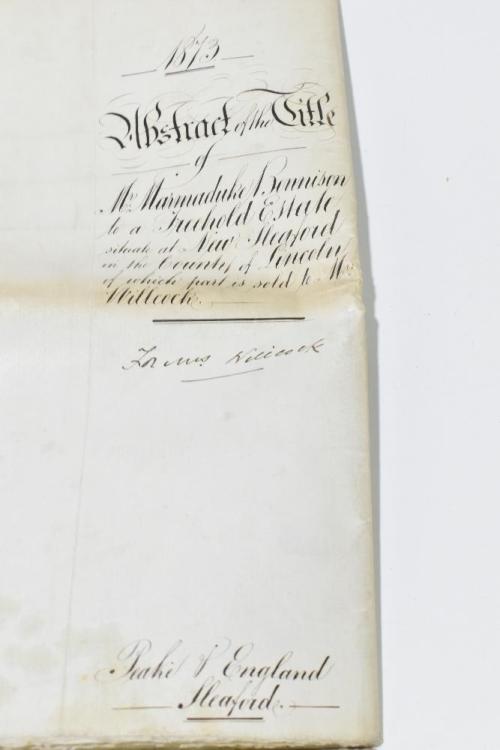 1873
Abstract of the Title
of
Mr. Marmaduke Bennison
to a Freehold Estate
situate at New Sleaford
in the County of Lincoln
of which part is sold to Mr.
Willcock.
For Mrs Willcock
Peake & England
Sleaford.